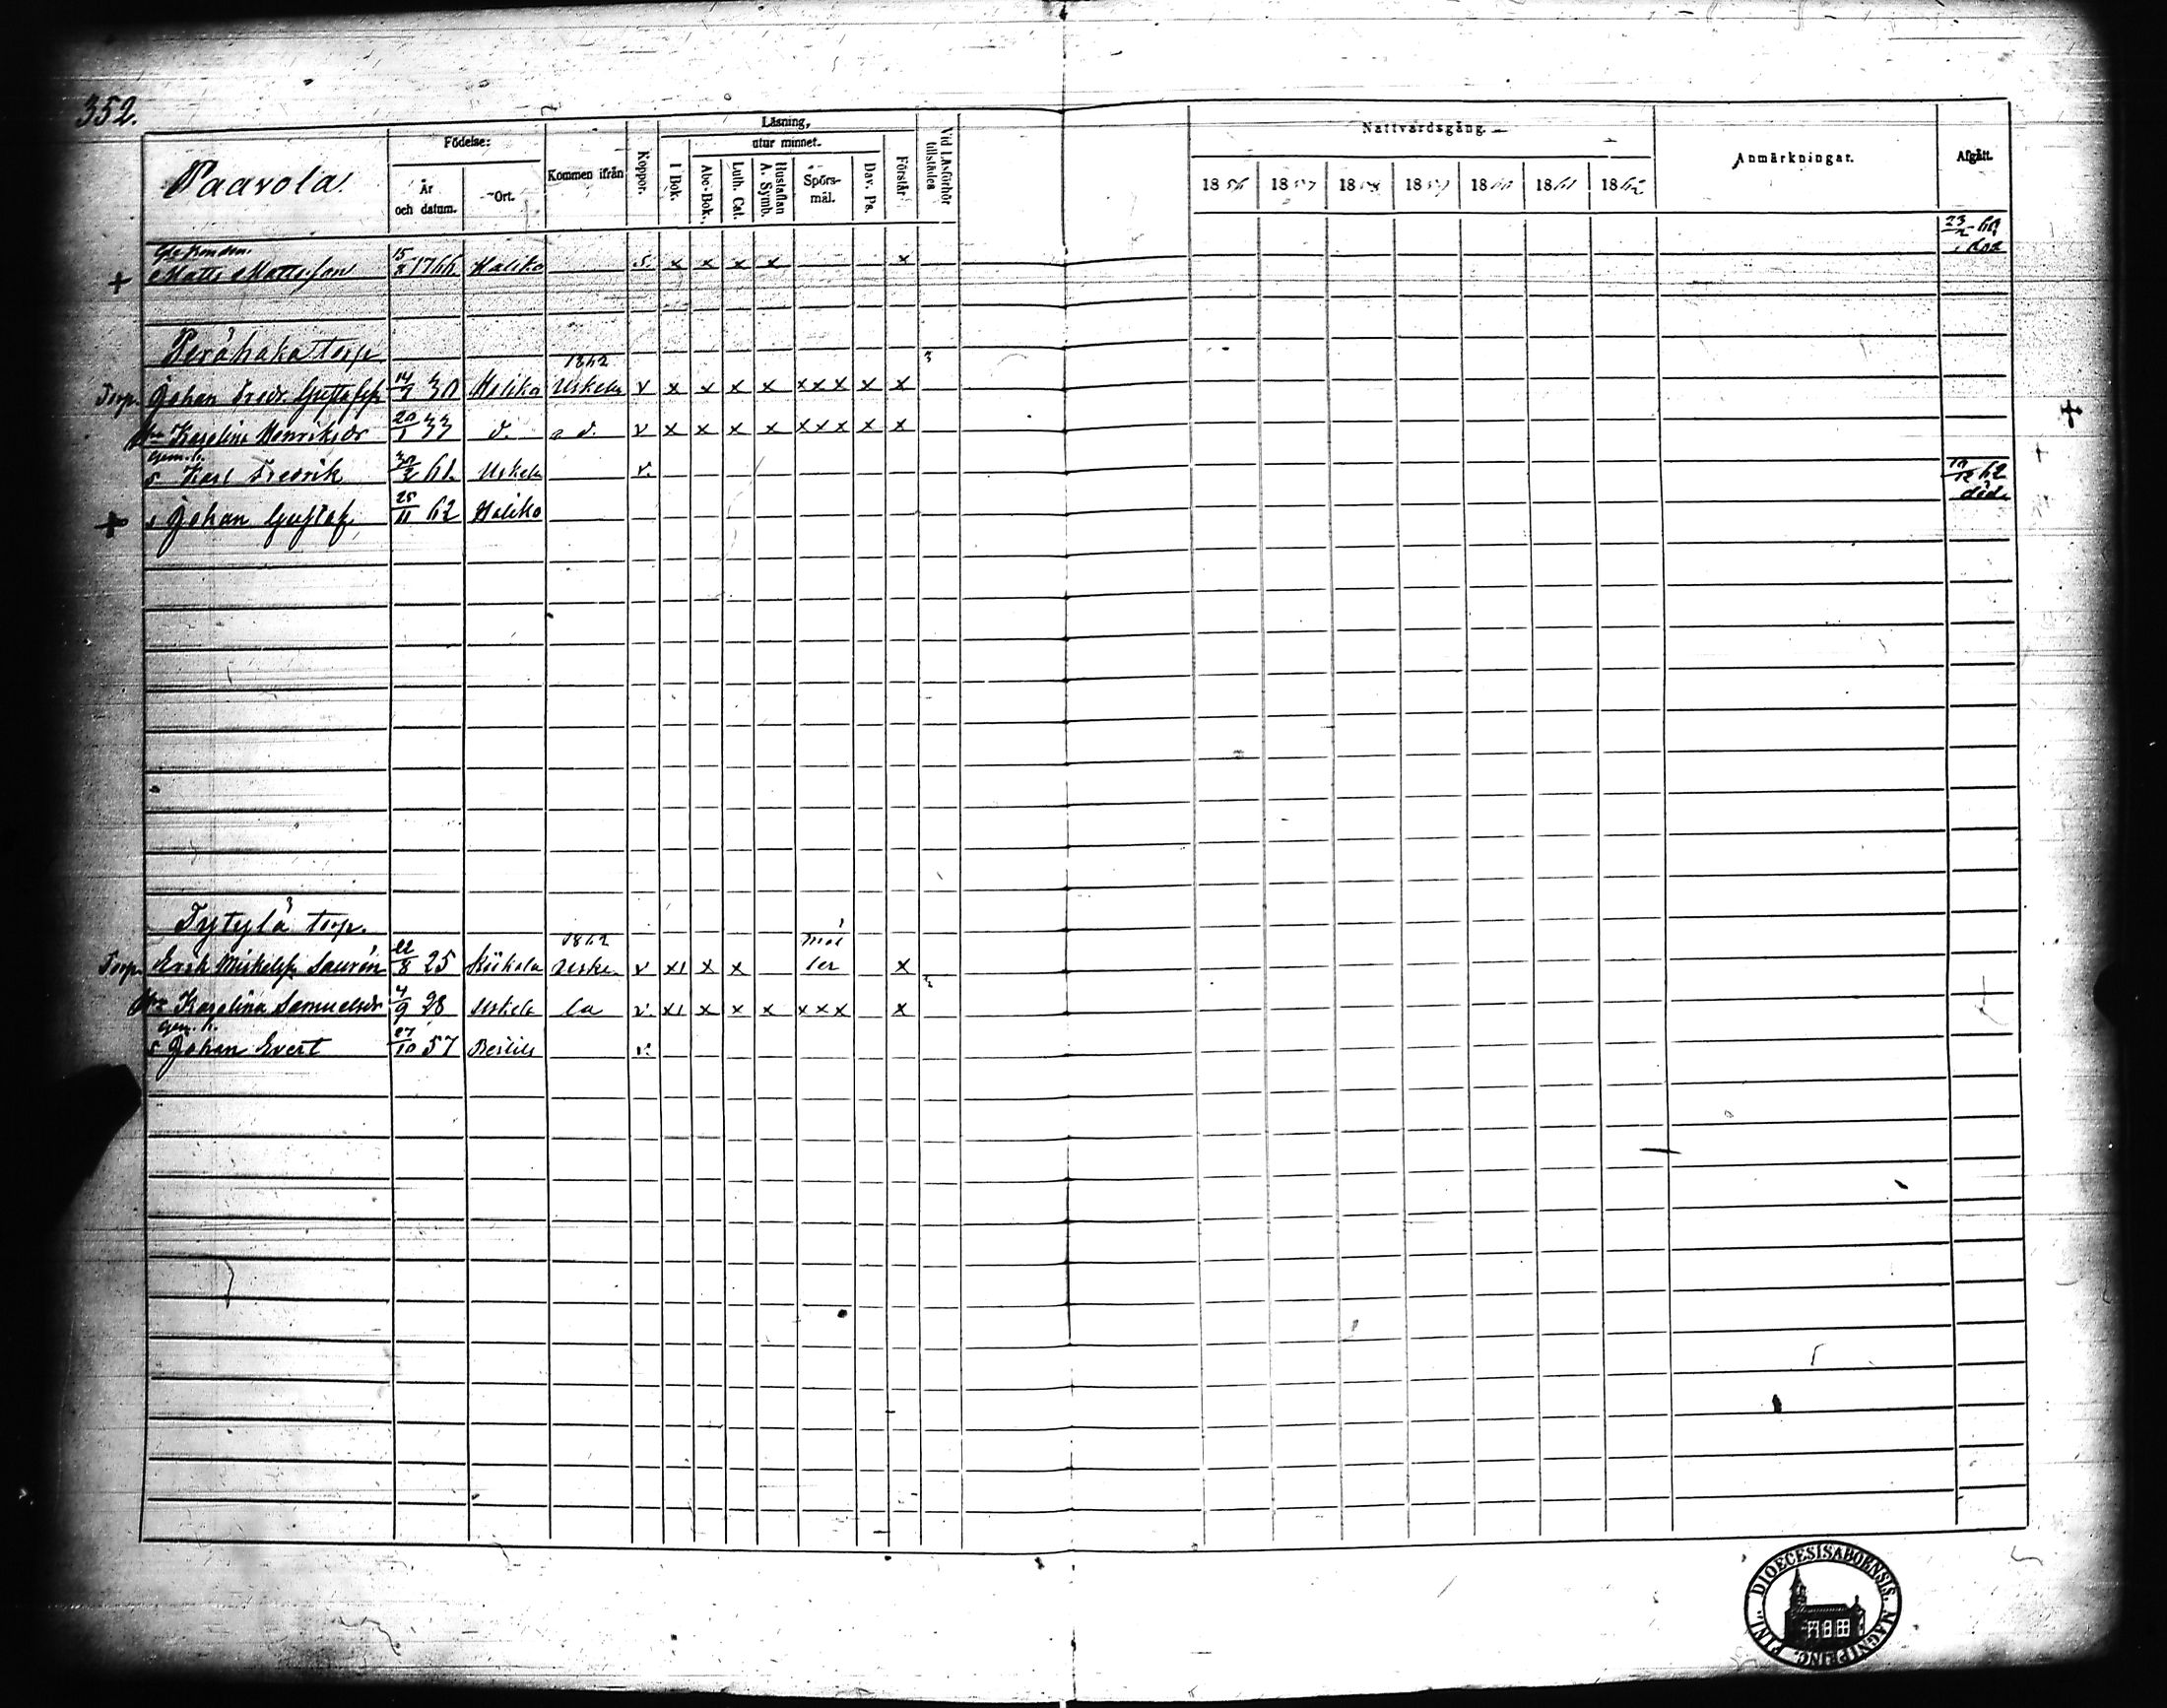 352.
Paavola
Födelse:
År och datum.
Ort.
Kommen ifrån
Koppor.
Läsning,
utur minnet.
I Bok.
Abc-Bok.
Luth. Cat.
Hustaflan A. Symb.
Spörs-mål.
Dav. Ps.
Förstår
Vid Läsförhör tillstädes
Nattvardsgång.
1856 1857 1858 1859 1860 1861 1862
Anmärkningar.
Afgått.
+ Matts Mattsson 15/2 1766 Haliko s. x x x x x 23/2 60
Peråhaka torp
1862
Torp. Johan Fredr. Gustafss. 14/9 30 Haliko Uskela v x x x x xxx x x
Hu Karolina Henriksdr 20/1 33 d. d. v x x x x xxx x x
gem. b.
s Karl Fredrik 61 Uskela v.
+ s Johan Gustaf 25/11 62 Haliko 62 död
Tytylä torp.
1862
Torp. Erik Mickelss. Saurén 22/8 25 Kiikala Uske- v x x x x
Hu Karolina Samuelsdr 4/9 28 Uskela la v. x x x x xxx x
gem. b.
s Johan Evert 27/10 57 v.
DIOECESIS ABOENSIS. MAGNI PRINC. FINL.